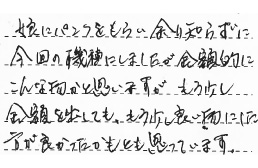 娘にパンフをもらい余り知らずに
今回の機種にしましたが金額的に
こんな物かと思いますが もう少し
金額を出しても、もう少し良い物にした
方が良かったかもとも思っています。